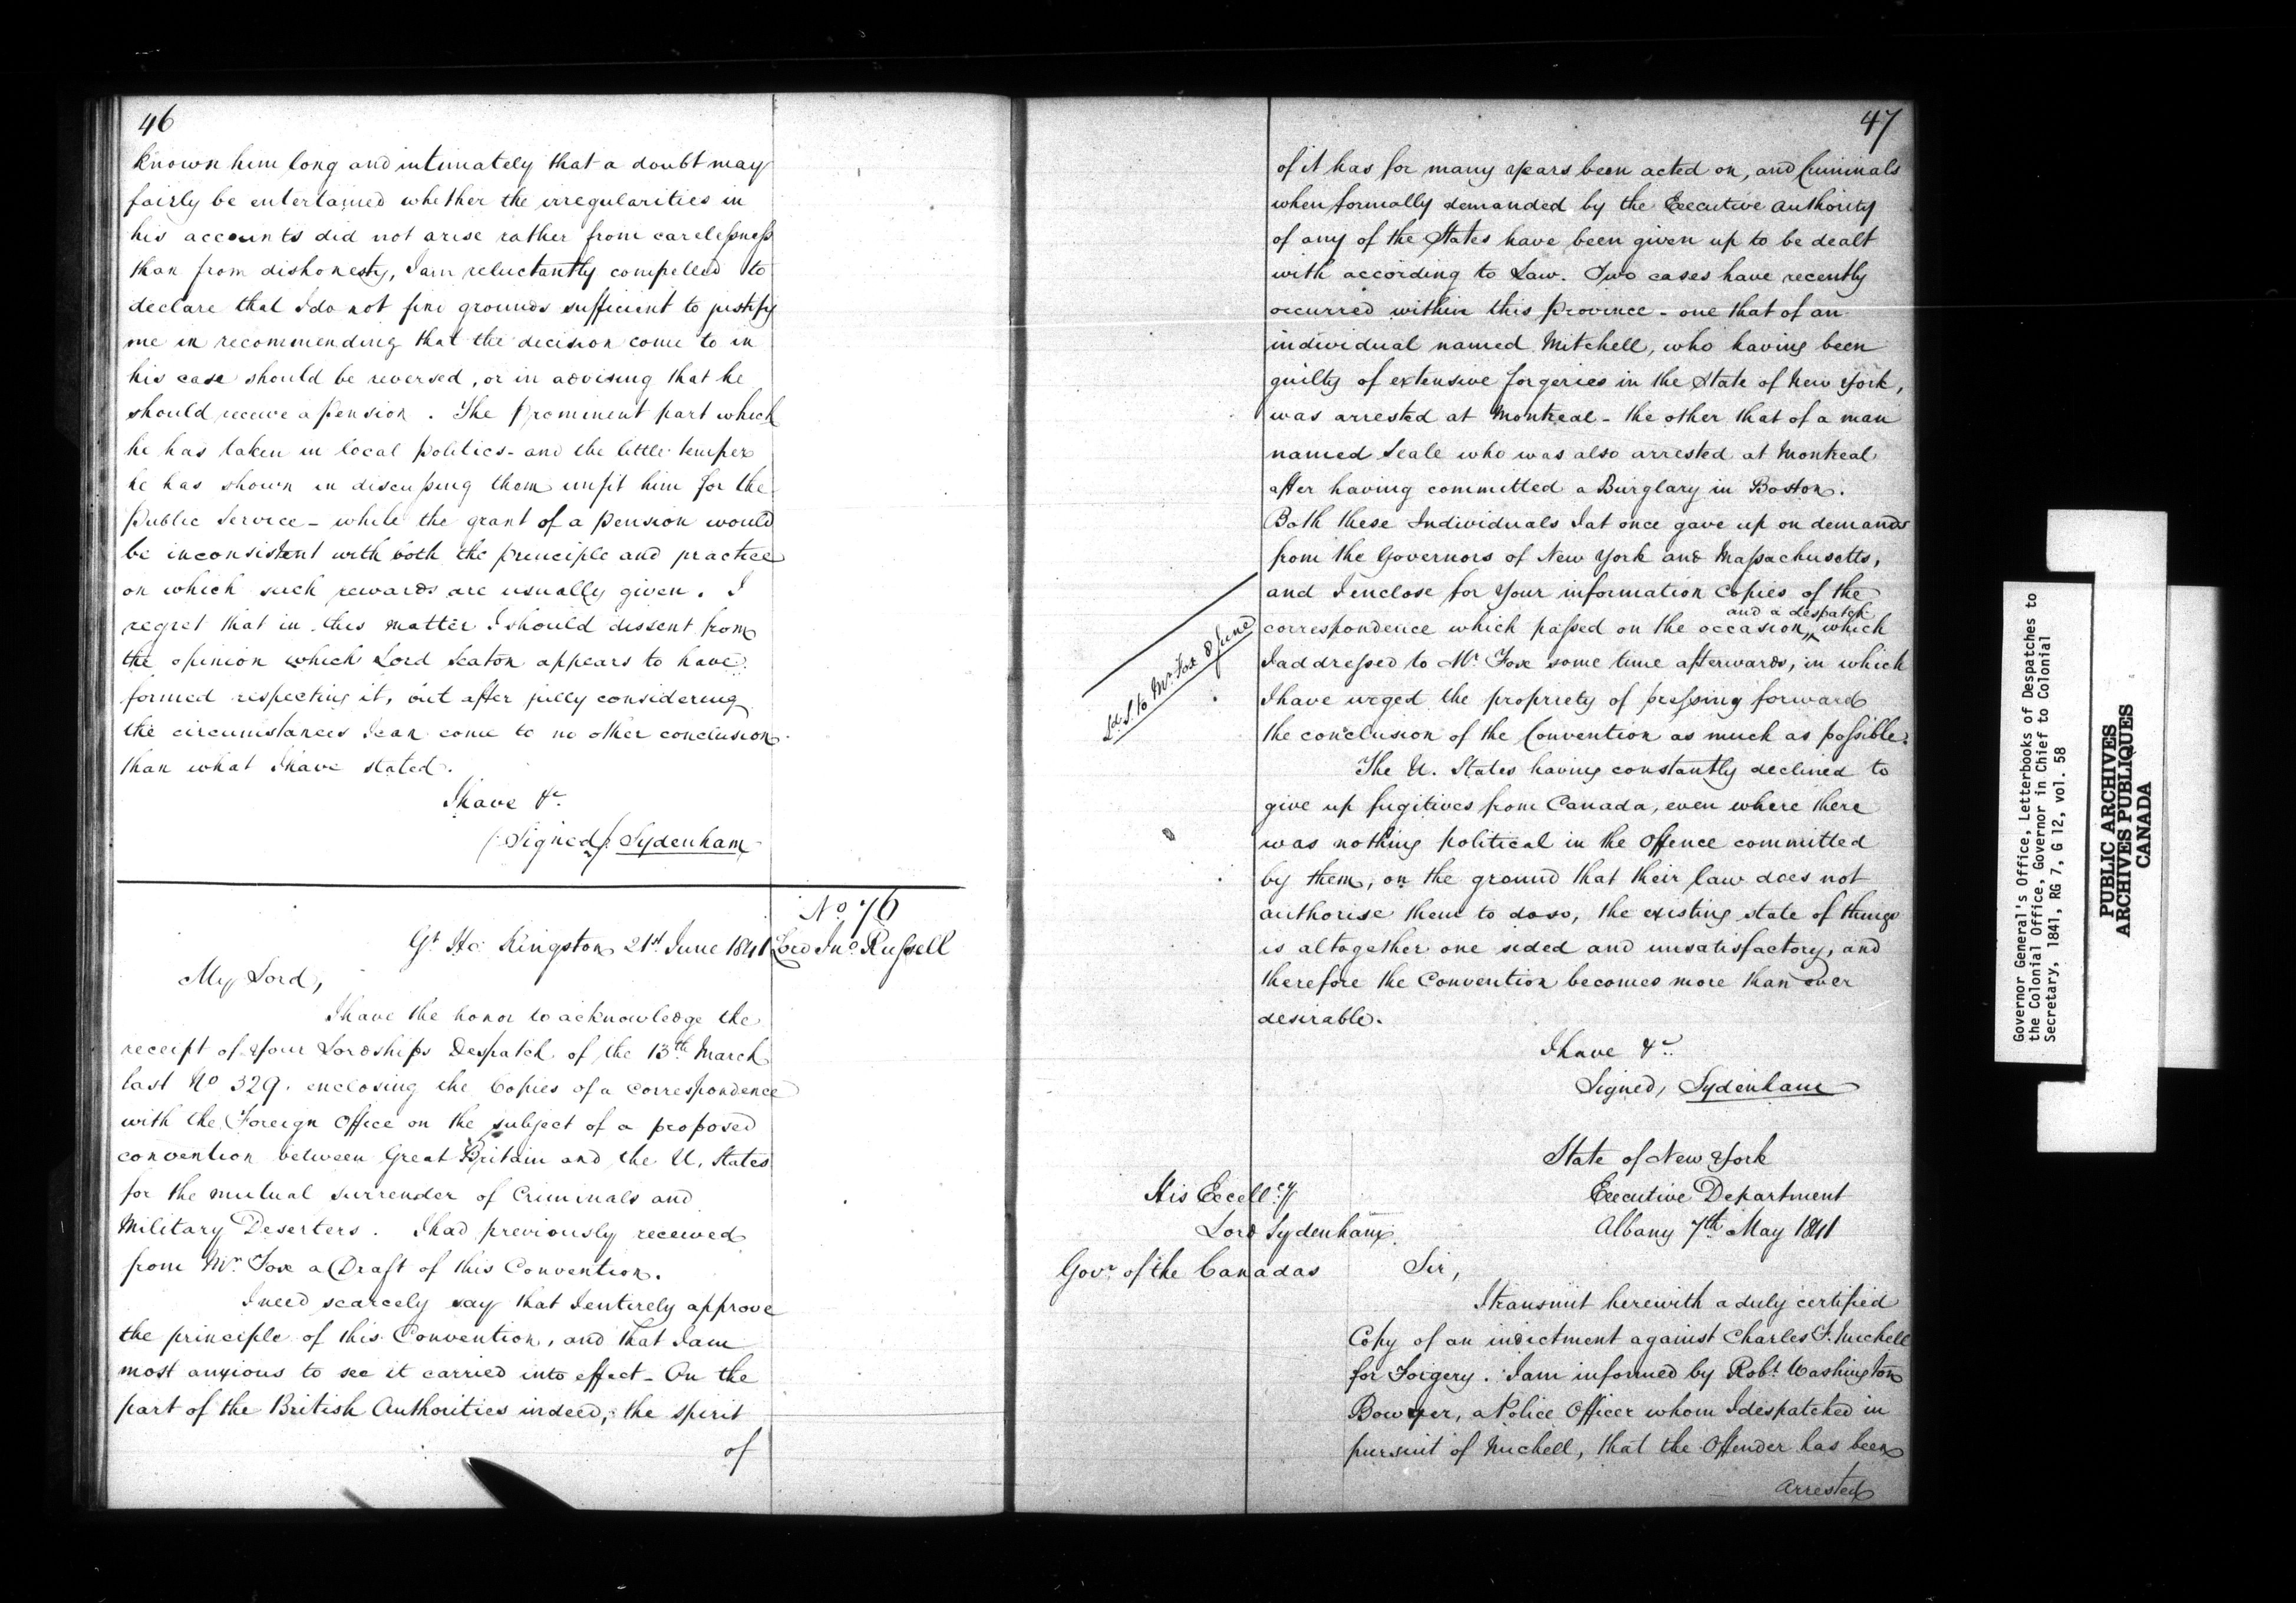 46
known him long and intimately that a doubt may
fairly be entertained whether the irregularities in
his accounts did not arise rather from carelessness
than from dishonesty, I am reluctantly compelled to
declare that I do not find grounds sufficient to justify
me in recommending that the decision come to in
his case should be reversed, or in advising that he
should receive a pension. The prominent part which
he has taken in local politics - and the little temper
he has shown in discussing them unfit him for the
Public Service - while the grant of a pension would
be inconsistent with both the principle and practice
on which such rewards are usually given. I
regret that in this matter I should dissent from
the opinion which Lord Seaton appears to have
formed respecting it, but after fully considering
the circumstances I can come to no other conclusion
than what I have stated.
I have &c
(Signed) Sydenham
No 76
Gt. Ho: Kingston 21st June 1841
Lord Jno. Russell
My Lord,
I have the honor to acknowledge the
receipt of Your Lordships Despatch of the 13th March
last No 329. enclosing the Copies of a correspondence
with the Foreign Office on the subject of a proposed
convention between Great Britain and the U. States
for the mutual surrender of Criminals and
Military Deserters. I had previously received
from Mr Fox a Draft of this Convention.
I need scarcely say that I entirely approve
the principle of this Convention, and that I am
most anxious to see it carried into effect - On the
part of the British Authorities indeed, the spirit
of
47
of it has for many years been acted on, and Criminals
when formally demanded by the Executive Authority
of any of the States have been given up to be dealt
with according to Law. Two cases have recently
occurred within this Province - one that of an
individual named Mitchell, who having been
guilty of extensive forgeries in the State of New York,
was arrested at Montreal - the other that of a man
named Seale who was also arrested at Montreal
after having committed a Burglary in Boston.
Both these Individuals I at once gave up on demands
from the Governors of New York and Massachusetts,
and I enclose for Your information Copies of the
and a despatch
correspondence which passed on the occasion, which
Ld. S. to Mr Fox 8 June
I addressed to Mr. Fox some time afterwards, in which
I have urged the propriety of pressing forward
the conclusion of the Convention as much as possible.
The U. States having constantly declined to
give up fugitives from Canada, even where there
was nothing political in the Offence committed
by them, on the ground that their law does not
authorise them to do so, the existing state of things
is altogether one sided and unsatisfactory, and
therefore the Convention becomes more than ever
desirable.
I have &c.
Signed, Sydenham
State of New York
Executive Department
Albany 7th May 1841
His Excellcy
Lord Sydenham
Govr. of the Canadas
Sir,
I transmit herewith a duly certified
Copy of an indictment against Charles F. Michell
for Forgery. I am informed by Robt. Washington
Bowyer, a Police Officer whom I despatched in
pursuit of Michell, that the Offender has been
arrested
Governor General's Office, Letterbooks of Despatches to
the Colonial Office, Governor in Chief to Colonial
Secretary, 1841, RG 7, G 12, vol. 58
PUBLIC ARCHIVES
ARCHIVES PUBLIQUES
CANADA